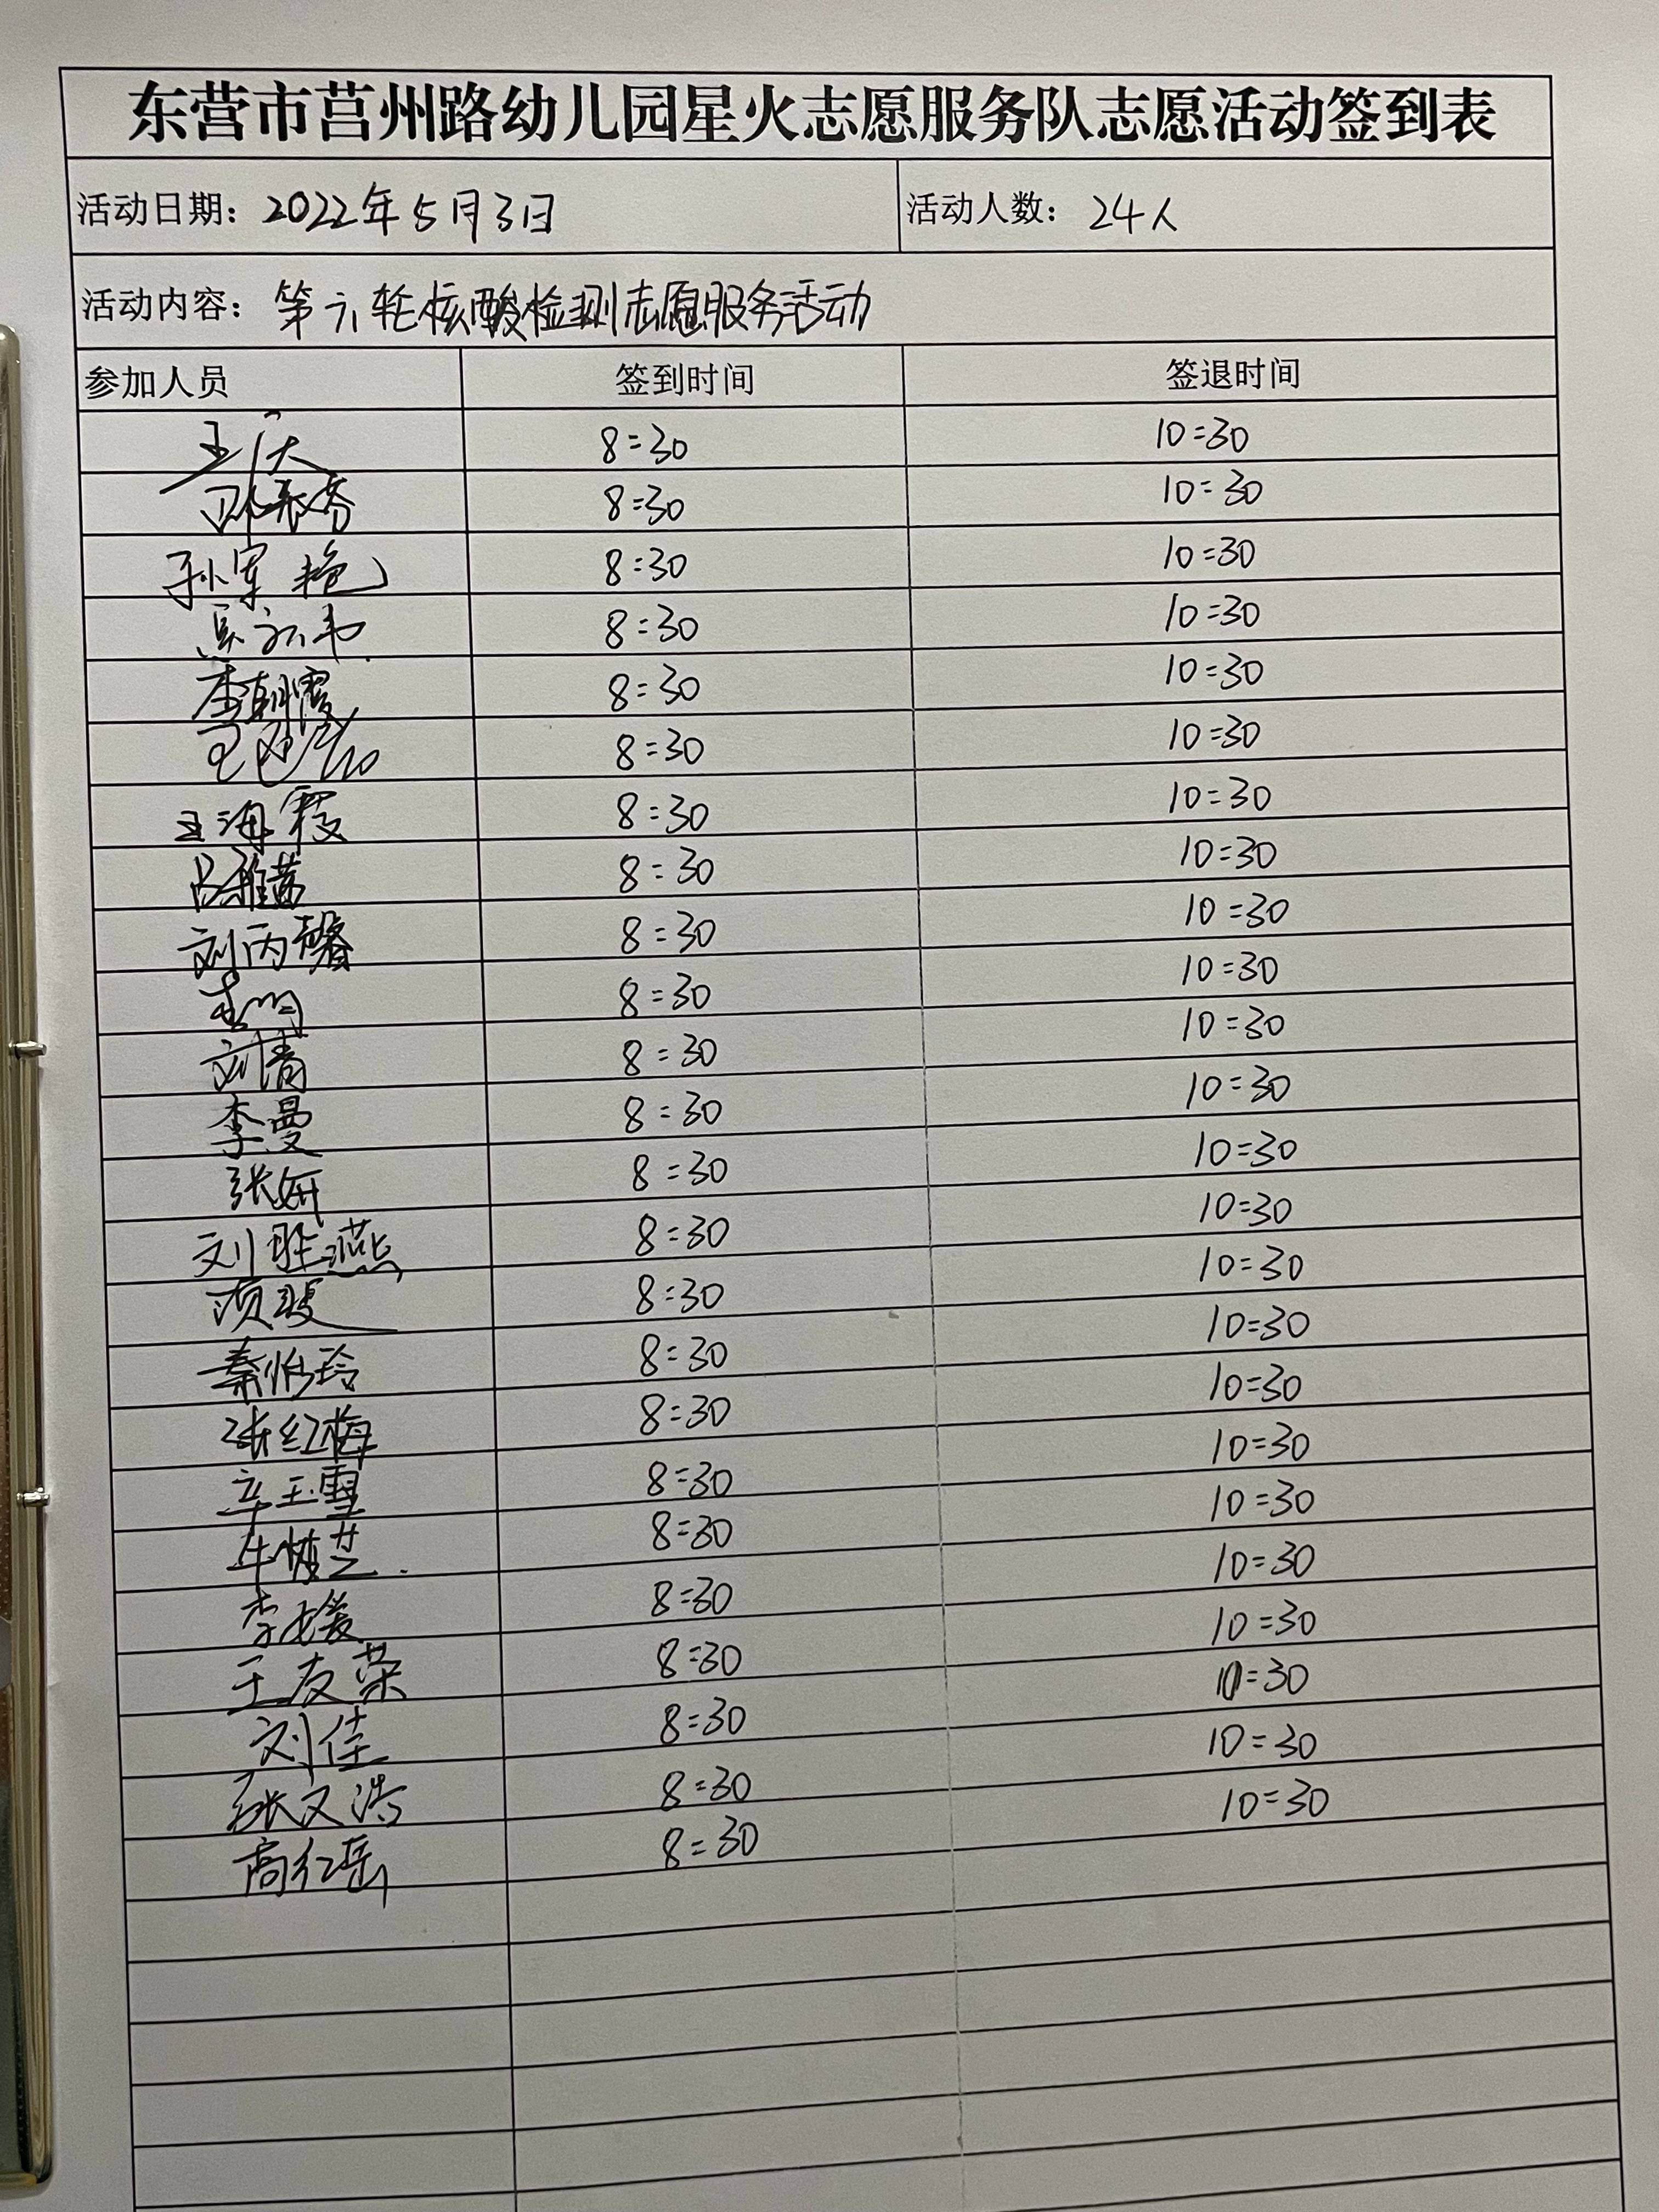 东营市莒州路幼儿园星火志愿服务队志愿活动签到表
活动日期：2022年5月3日 活动人数：24人
活动内容：第六轮核酸检测志愿服务活动
参加人员 签到时间 签退时间
8:30 10:30
8:30 10:30
孙军艳 8:30 10:30
8:30 10:30
李朝霞 8:30 10:30
8:30 10:30
王海霞 8:30 10:30
吕雅茜 8:30 10:30
刘丙馨 8:30 10:30
8:30 10:30
刘清 8:30 10:30
李曼 8:30 10:30
张妍 8:30 10:30
刘胜燕 8:30 10:30
8:30 10:30
秦怡玲 8:30 10:30
张红梅 8:30 10:30
辛玉雪 8:30 10:30
8:30 10:30
8:30 10:30
王友荣 8:30 10:30
刘佳 8:30 10:30
张文浩 8:30 10:30
高红岳 8:30 10:30